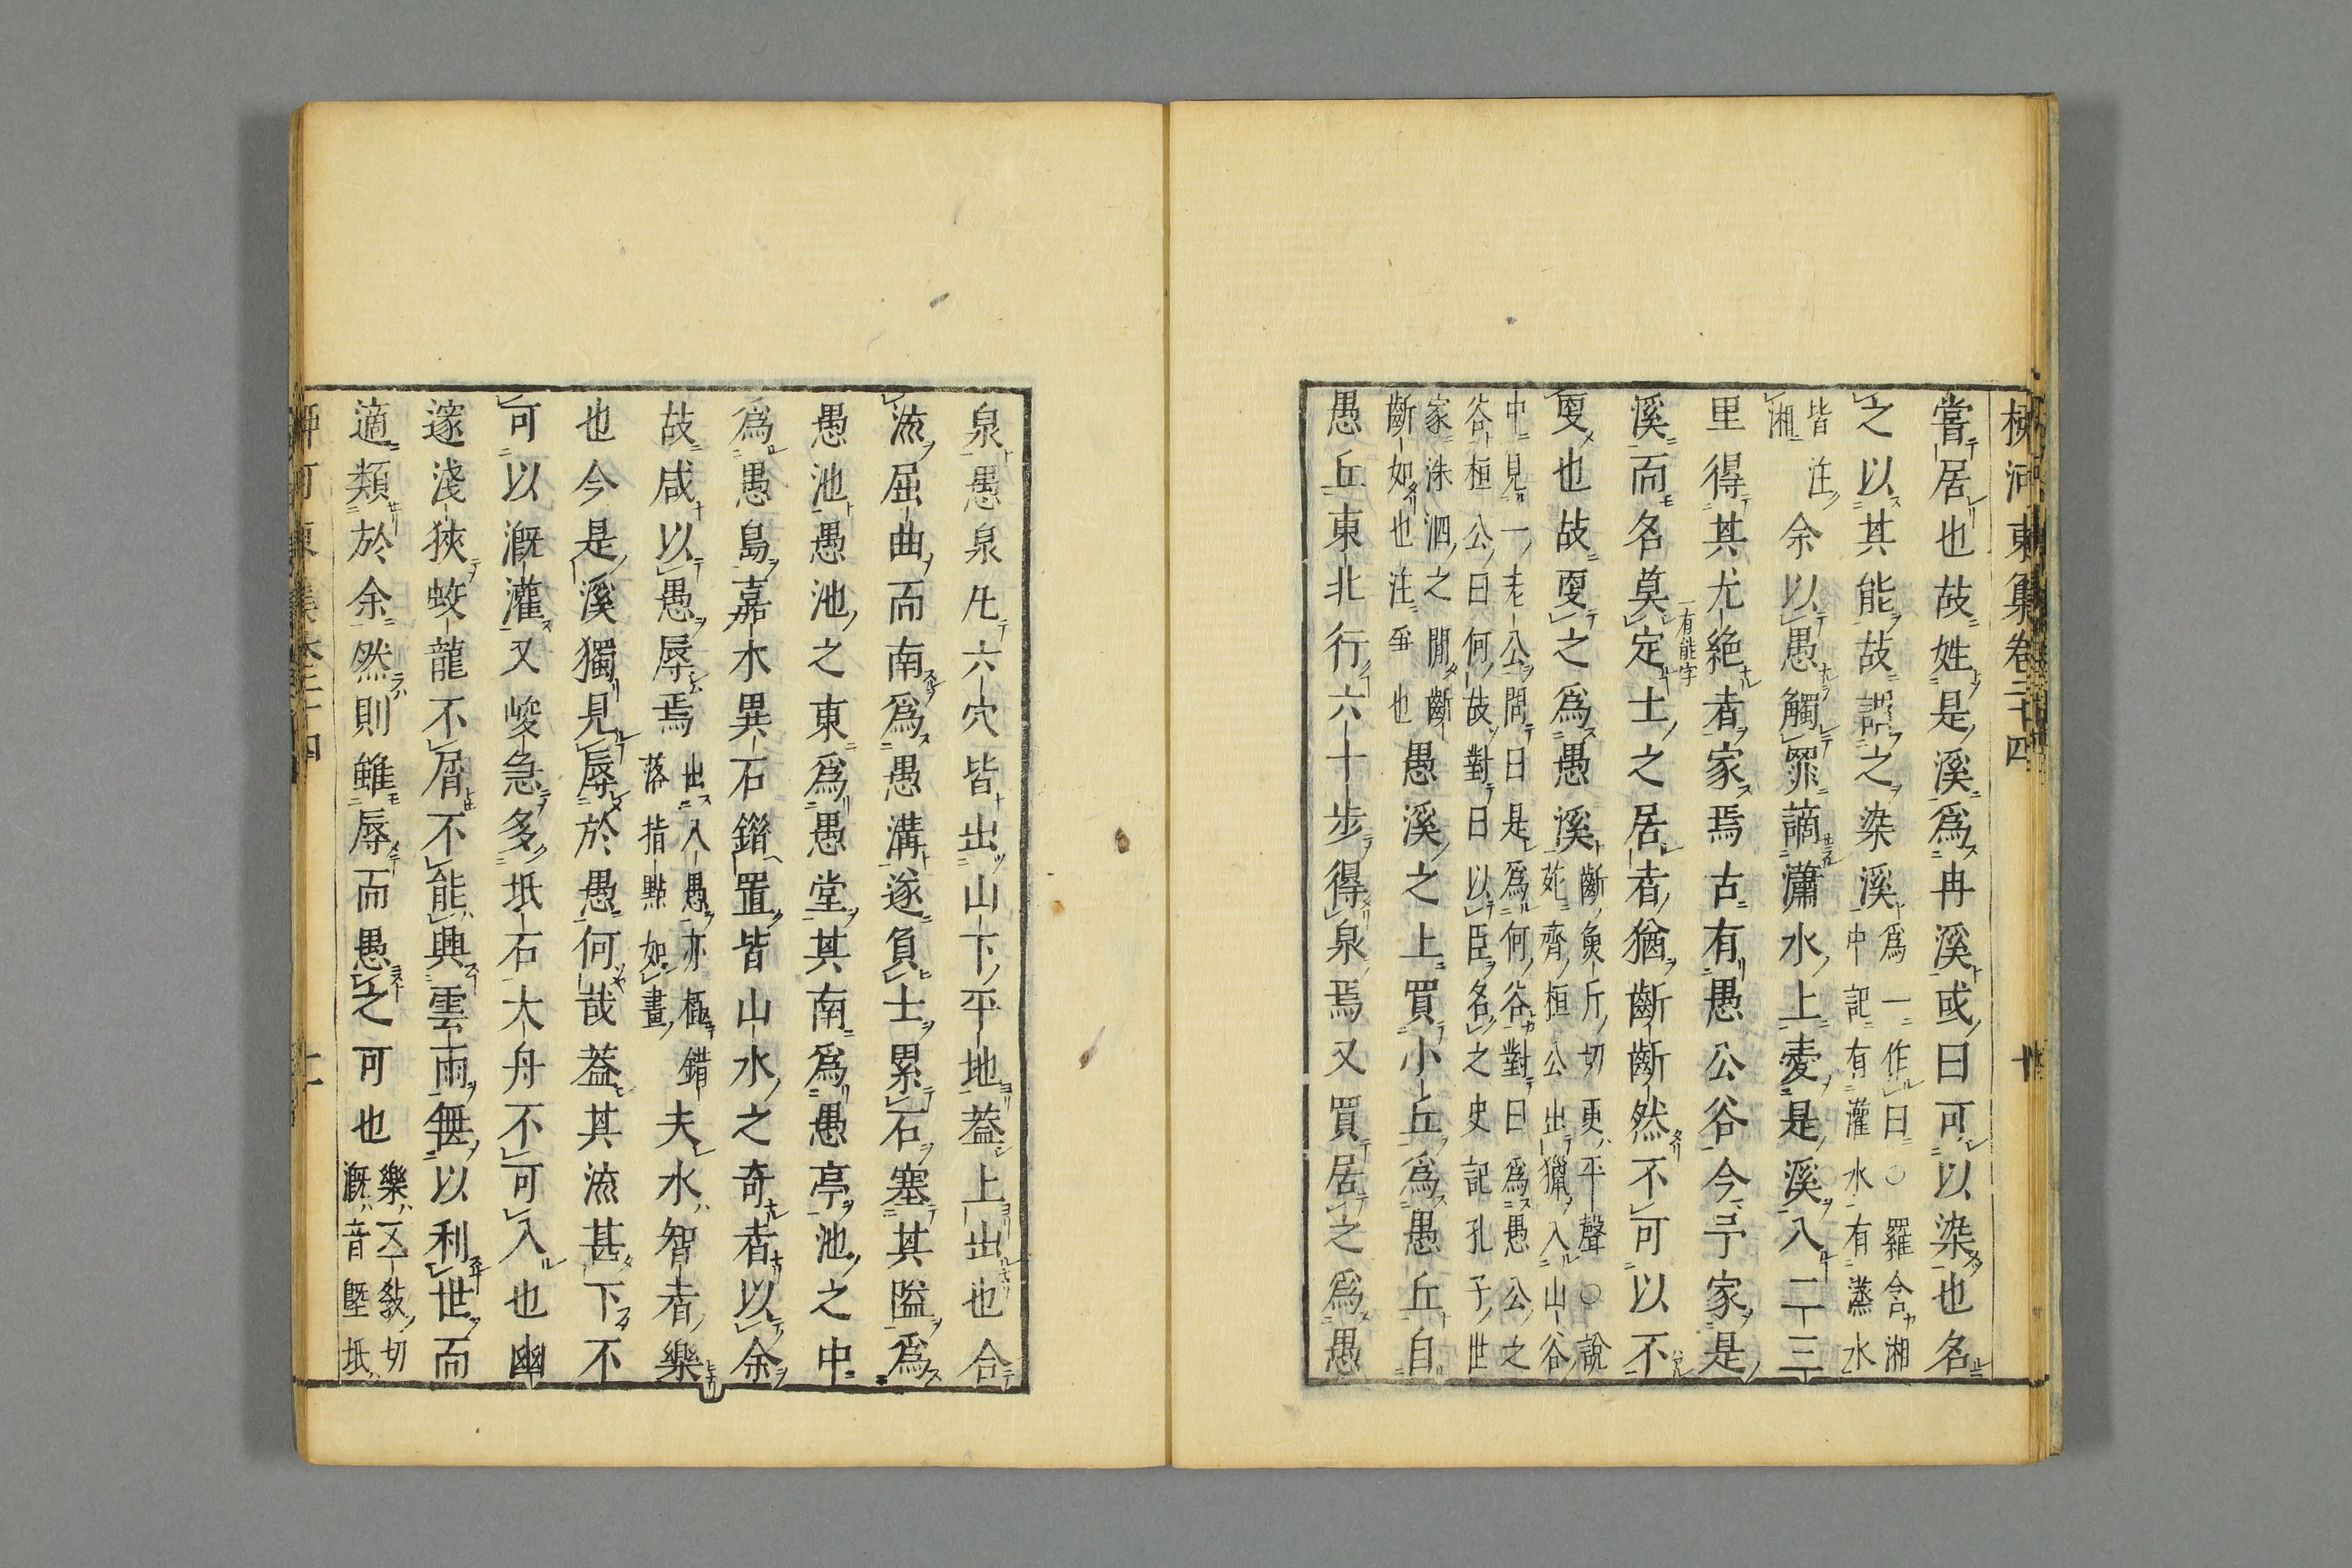 柳河東集卷二十四 十
嘗居也故姓是溪爲冉溪或曰可以染也名
之以其能故謂之染溪
爲一作曰○羅含湘
中記有灌水有蒸水
皆注
湘
余以愚觸罪謫瀟水上愛是溪入二三
里得其尤絶者家焉古有愚公谷今予家是
一有能字
溪而名莫定士之居者猶齗齗然不可以不
更也故更之爲愚溪
齗魚斤切更平聲○說
苑齊桓公出獵入山谷
中見一老公問曰是爲何谷對曰爲愚公之
谷桓公曰何故對曰以臣名之史記孔子世
家洙泗之間齗
齗如也注爭也
愚溪之上買小丘爲愚丘自
愚丘東北行六十步得泉焉又買居之爲愚
泉愚泉凡六穴皆出山下平地葢上出也合
流屈曲而南爲愚溝遂負土累石塞其隘爲
愚池愚池之東爲愚堂其南爲愚亭池之中
爲愚島嘉木異石錯置皆山水之奇者以余
故咸以愚辱焉
出入愚亦極錯
落指點如畫
夫水智者樂
也今是溪獨見辱於愚何哉葢其流甚下不
可以漑灌又峻急多坻石大舟不可入也幽
邃淺狹蛟龍不屑不能興雲雨無以利世而
適類於余然則雖辱而愚之可也
樂五敎切
漑音墍坻